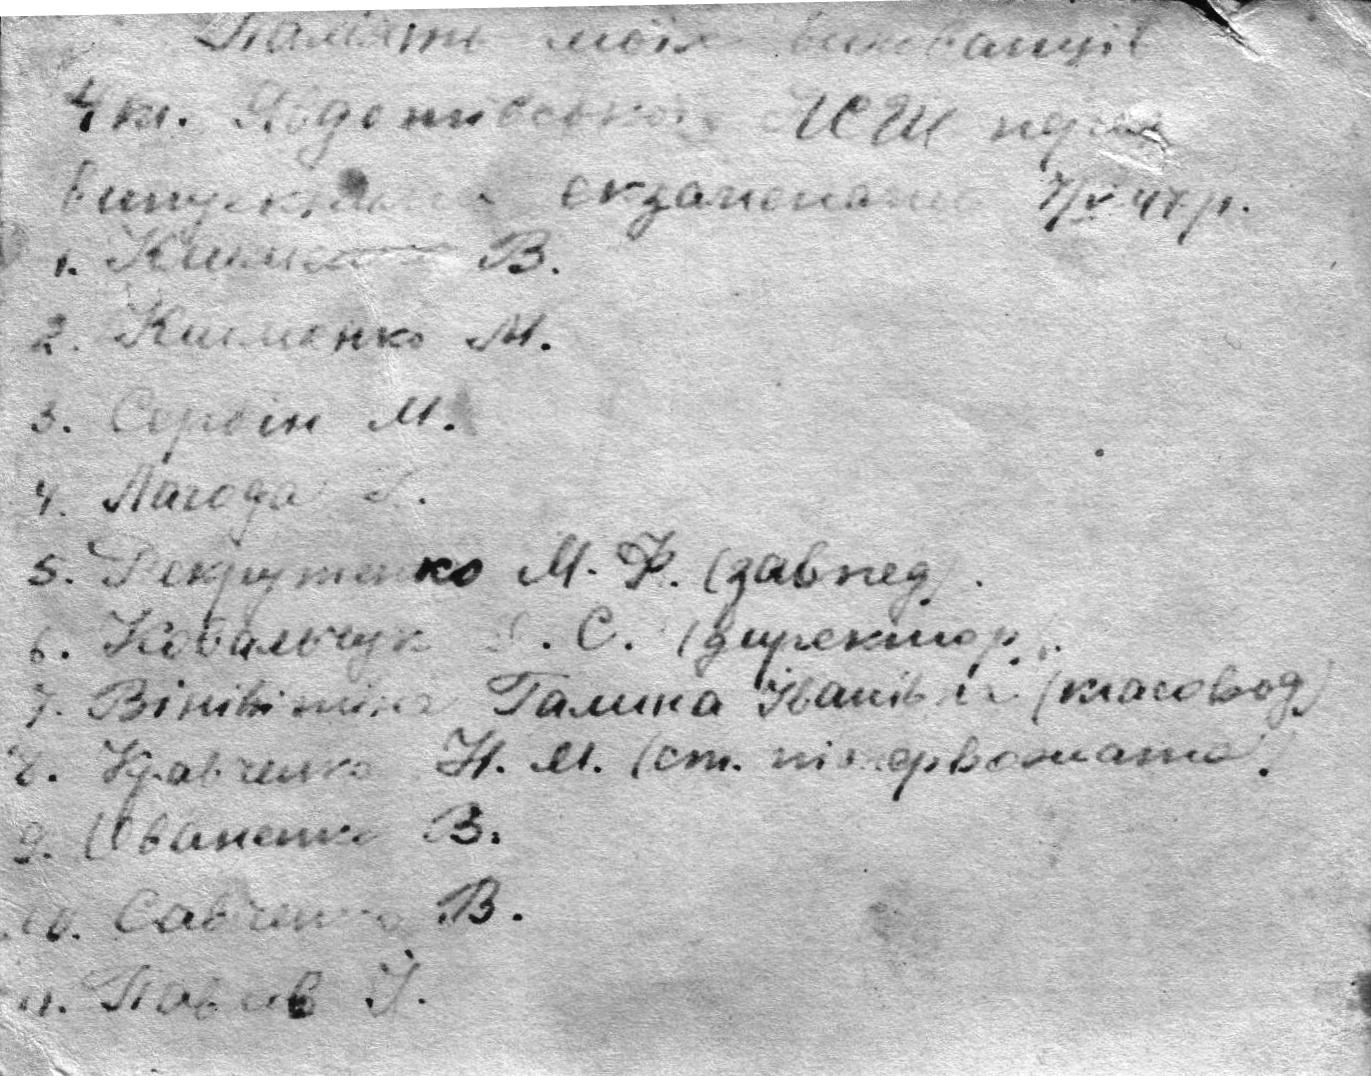 Пам'ять моїх вихованців
4 кл. Явдотивської НСШ перед
випускними екзаменами 7/V 47 р.
1. В.
2. Клименко М.
3. Сербін М.
4. Лагода
5. Рекрутенко М. Ф. (завпед).
6. Ковальчук С. (директор).
7. Галина Іванівна (класовод)
8. Кравченко Н. М. (ст. піонервожата).
9. Іваненко В.
10. Савченко В.
11. Й.